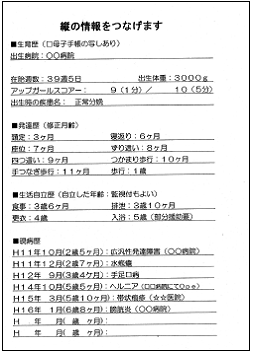 縦の情報をつなげます
■生育歴（口母子手帳の写しあり）
出生病院：〇〇病院
在胎週数：39週5日　出生体重：3000g
アップガールスコアー：　9（1分）／　10（5分）
出生時の疾患名：　正常分娩
■発達歴（修正月齢）
頚定：3ヶ月　寝返り：6ヶ月
座位：7ヶ月　ずり這い：8ヶ月
四つ這い：9ヶ月　つかまり歩行：10ヶ月
手つなぎ歩行：11ヶ月　歩行：1歳
■生活自立歴（自立した年齢：監視付もよい）
食事：3歳6ヶ月　排泄：3歳10ヶ月
更衣：4歳　入浴：5歳（部分援助要）
■現病歴
H11年10月（2歳5ヶ月）：広汎性発達障害（〇〇病院）
H11年12月（2歳7ヶ月）：水疱瘡
H12年　9月（3歳4ケ月）：手足口病
H14年10月（5歳5ヶ月）：ヘルニア（〇〇病院にてOpe）
H15年　3月（5歳10ヶ月）：帯状疱疹（☆☆医院）
H16年　1月（6歳8ヶ月）：膀胱炎（〇〇病院）
H　年　月（　歳　ヶ月）：
H　年　月（　歳　ヶ月）：